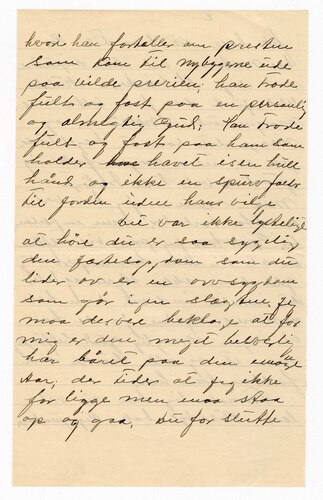 hvor han fortæller om presten
som kom til nybyggerne ude
paa vilde prerien; han trode
fult og fast paa en personlig
og almegtig Gud; han trode
fult og fast paa ham som
holder havet i sin hule
haand og ikke en spurv falder
til jorden uden hans vilge
Det var ikke lystelig
at høre du er saa sygelig
den som du
lider av er en arvsygdom
som gør igen i slægten, je
maa desvere beklage at for
mig er den meget beherlig
har båret paa den i mange
aar, der tider at jeg ikke
for ligge men maa staa
op og gaa. Du for slutte